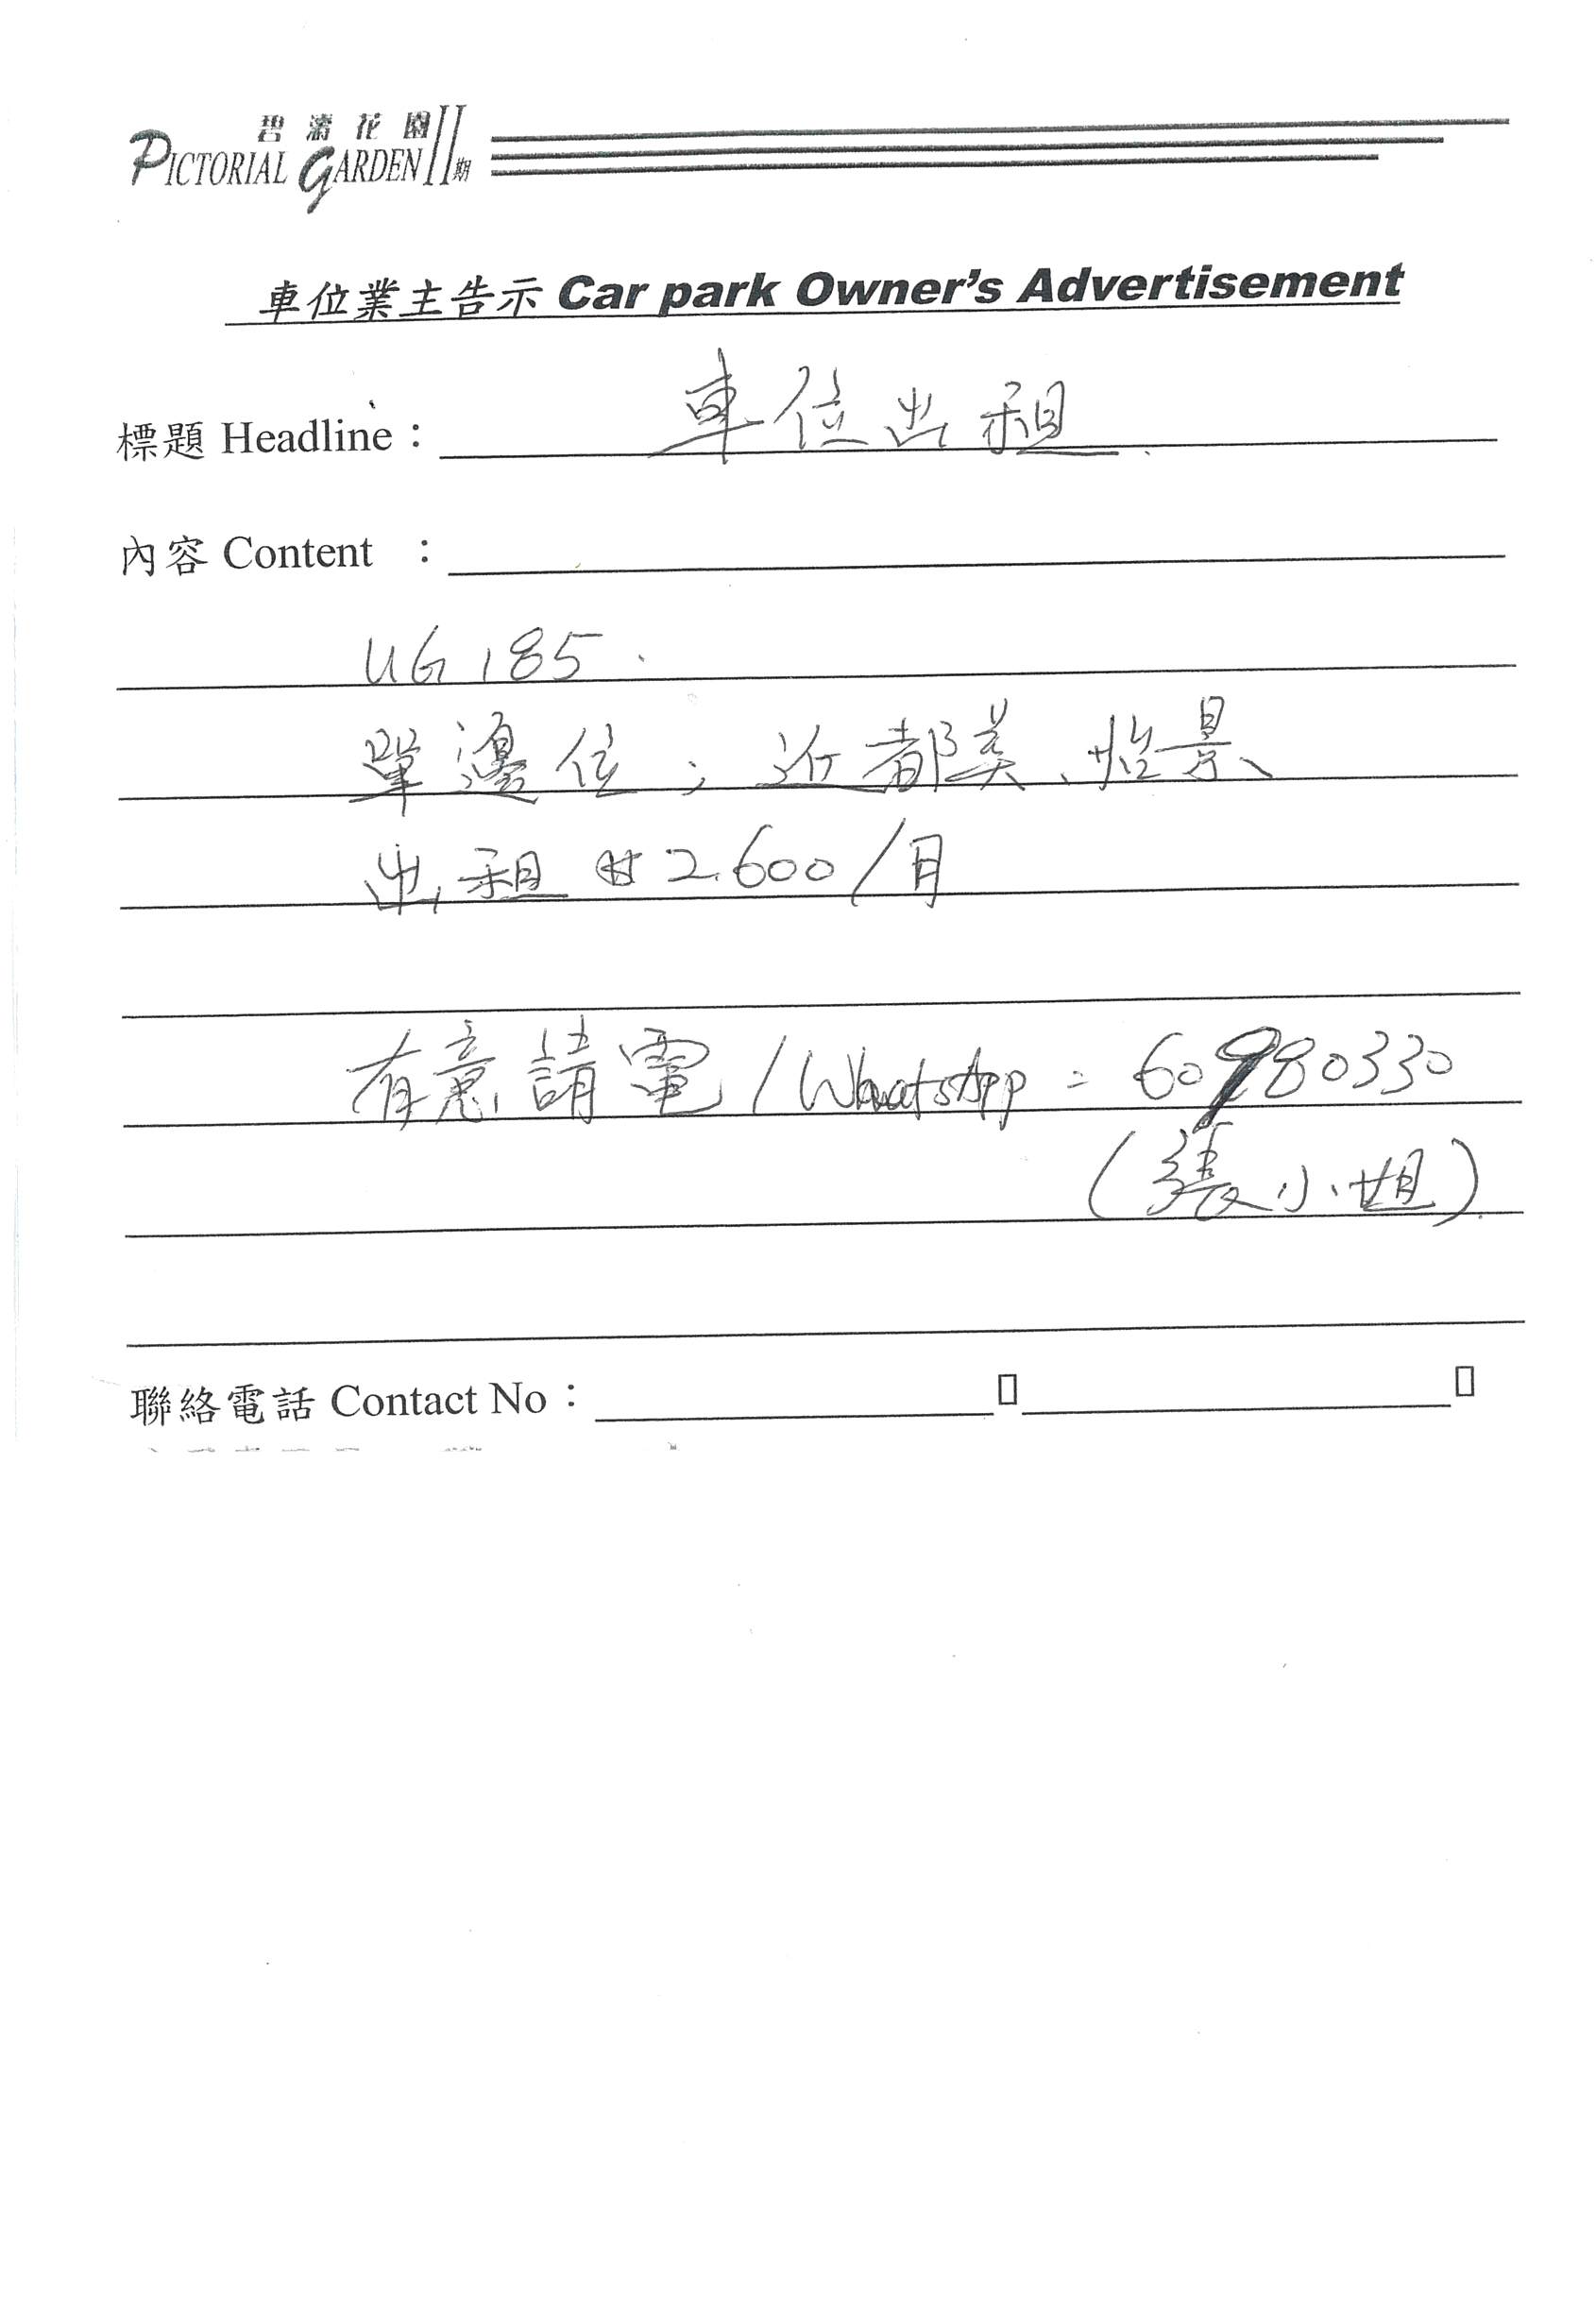 碧濤花園
PICTORIAL GARDEN II期
車位業主告示 Car park Owner's Advertisement
標題 Headline： 車位出租
內容 Content ：
UG 185.
單邊位；近都美、怡景
出租 $2,600/月
有意請電/WhatsApp = 60980330
(張小姐)
聯絡電話 Contact No：